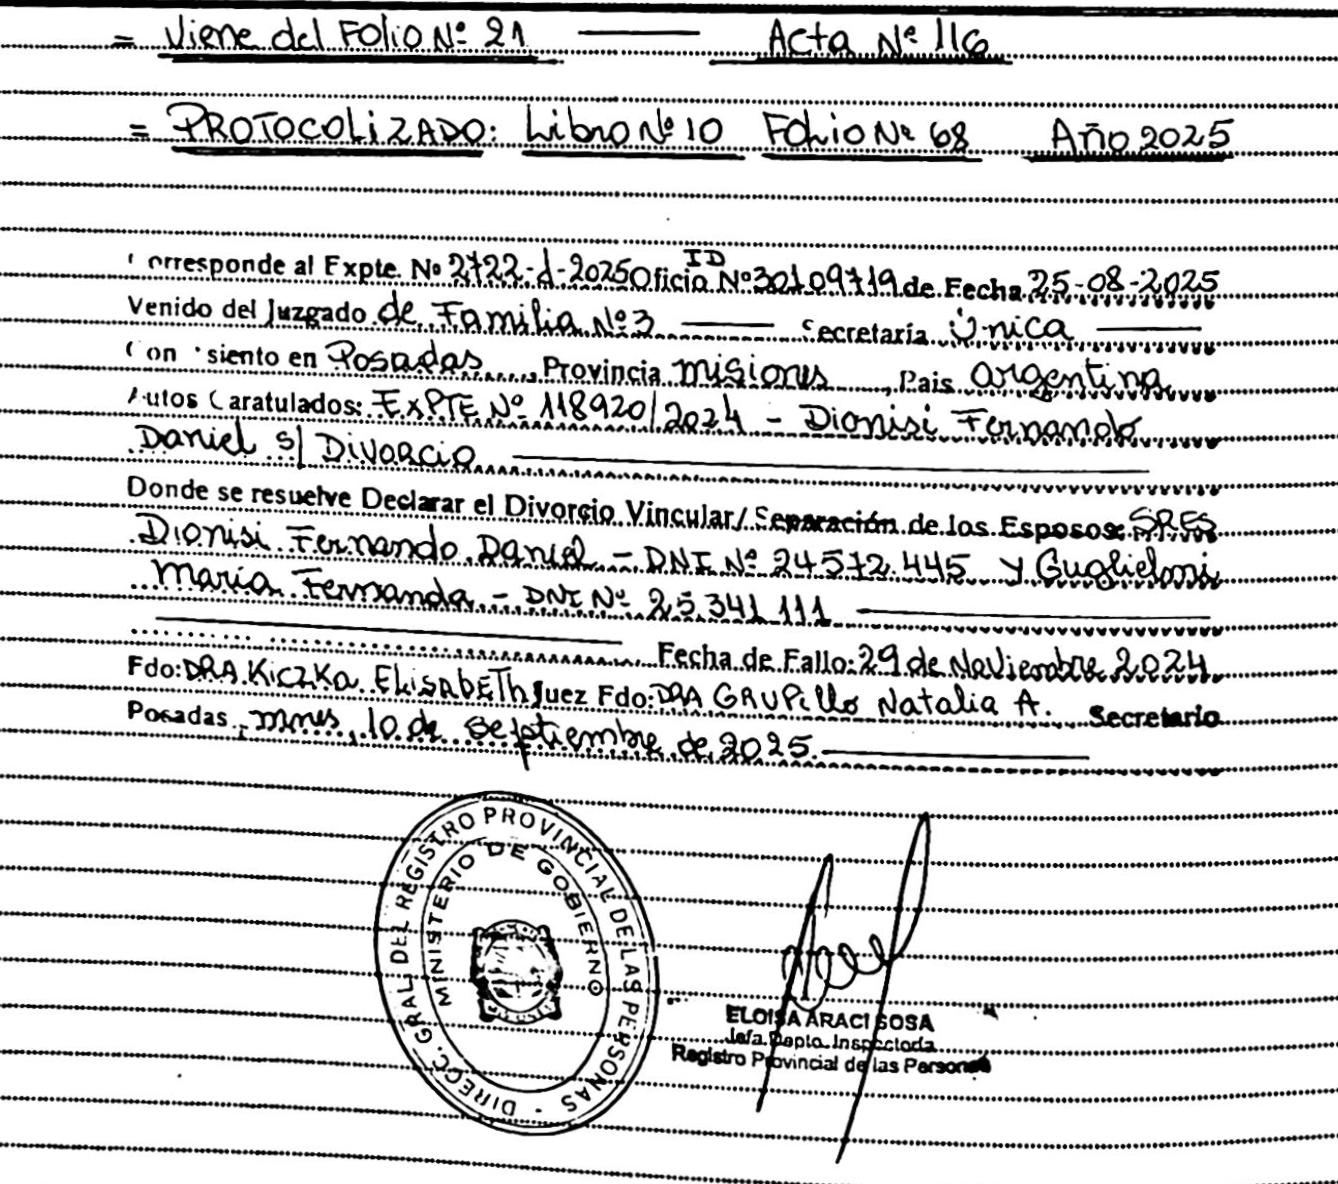 = Viene del Folio Nº 21 ——— Acta Nº 116
= PROTOCOLIZADO: Libro Nº 10 Folio Nº 68 Año 2025
Corresponde al Expte. Nº 2722-d-2025 Oficio ID Nº 30109719 de Fecha 25-08-2025
Venido del Juzgado de Familia Nº 3 ——— Secretaría Única ———
Con asiento en Posadas, Provincia Misiones, Pais Argentina
Autos Caratulados: EXPTE Nº 118920/2024 - Dionisi Fernando
Daniel s/ Divorcio ———
Donde se resuelve Declarar el Divorcio Vincular/ Separación de los Esposos: SRES
Dionisi Fernando Daniel - DNI Nº 24.572.445 y Guglielmi
Maria Fernanda - DNI Nº 25.341.111 ———
——— Fecha de Fallo: 29 de Noviembre 2024.
Fdo: DRA Kiczka Elisabeth Juez Fdo: DRA GRUPillo Natalia A. Secretario
Posadas, mnes, 10 de septiembre de 2025. ———
DIRECC. GRAL. DEL REGISTRO PROVINCIAL DE LAS PERSONAS -
MINISTERIO DE GOBIERNO
ELOISA ARACI SOSA
Jefa Depto. Inspectoria
Registro Provincial de las Personas